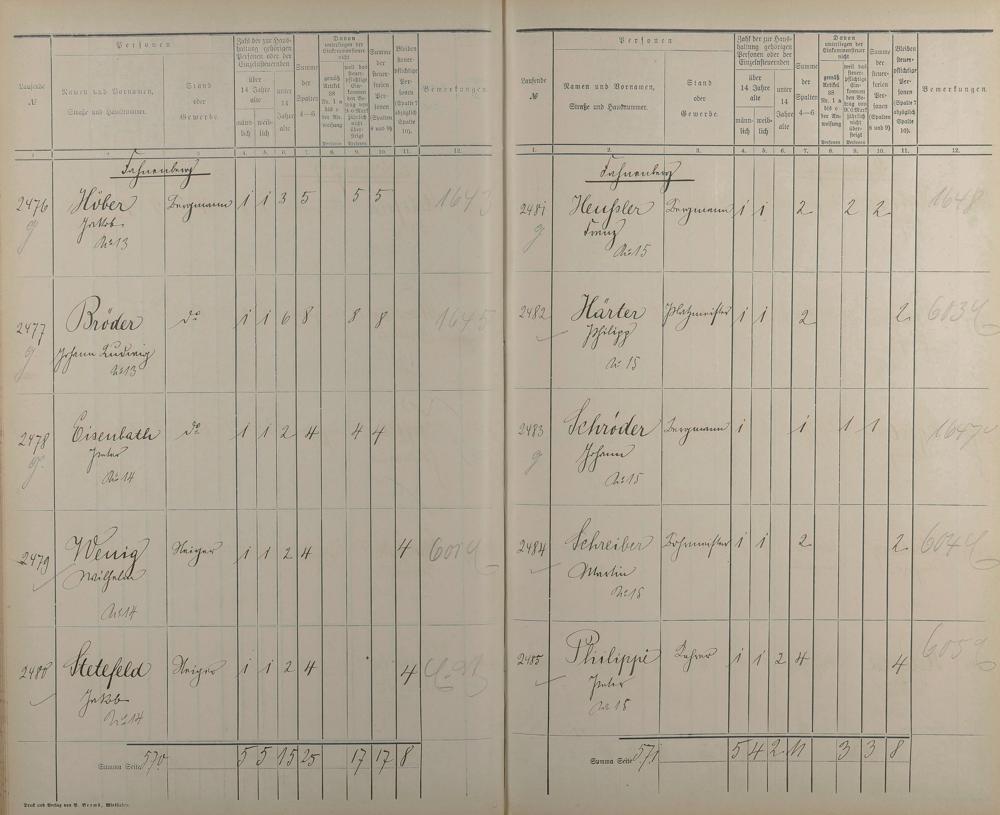 Laufende
№
Personen
Namen und Vornamen,
Straße und Hausnummer.
Stand
oder
Gewerbe
Zahl der zur Haus-
haltung gehörigen
Personen oder der
Einzelsteuernden
über
14 Jahre
alte
männ-
lich
weib-
lich
unter
14
Jahre
alte
Summe
der
Spalten
4—6
Davon
unterliegen der
Einkommensteuer
nicht
gemäß
Artikel
38
Nr. 1 a
bis e
der An-
weisung
Personen
weil das
steuer-
pflichtige
Ein-
kommen
den Be-
trag von
900 Mark
jährlich
nicht
über-
steigt
Personen
Summe
der
steuer-
freien
Per-
sonen
(Spalten
8 und 9)
Bleiben
steuer-
pflichtige
Per-
sonen
(Spalte 7
abzüglich
Spalte
10).
Bemerkungen.
1. 2. 3. 4. 5. 6. 7. 8. 9. 10. 11. 12.
Fahnenberg
2476 Höber Bergmann 1 1 3 5 5 5 1643
g Jakob
No 13
2477 Bröder do 1 1 6 8 8 8 1645
g Johann Ludwig
No 13
2478 Eisenbath do 1 1 2 4 4 4
g Peter
No 14
2479 Wenig Steiger 1 1 2 4 4
Wilhelm
No 14
2480 Stetefeld Steiger 1 1 2 4 4
Jakob
No 14
Summa Seite 570 5 5 15 25 17 17 8
Druck und Verlag von P. Plaum, Wiesbaden.
Laufende
№
Personen
Namen und Vornamen,
Straße und Hausnummer.
Stand
oder
Gewerbe
Zahl der zur Haus-
haltung gehörigen
Personen oder der
Einzelsteuernden
über
14 Jahre
alte
männ-
lich
weib-
lich
unter
14
Jahre
alte
Summe
der
Spalten
4—6
Davon
unterliegen der
Einkommensteuer
nicht
gemäß
Artikel
38
Nr. 1 a
bis e
der An-
weisung
Personen
weil das
steuer-
pflichtige
Ein-
kommen
den Be-
trag von
900 Mark
jährlich
nicht
über-
steigt
Personen
Summe
der
steuer-
freien
Per-
sonen
(Spalten
8 und 9)
Bleiben
steuer-
pflichtige
Per-
sonen
(Spalte 7
abzüglich
Spalte
10).
Bemerkungen.
1. 2. 3. 4. 5. 6. 7. 8. 9. 10. 11. 12.
Fahnenberg
2481 Heußler Bergmann 1 1 2 2 2 1648
g Franz
No 15
2482 Härter Platzmeister 1 1 2 2
Philipp
No 15
2483 Schröder Bergmann 1 1 1 1 1647
g Johann
No 15
2484 Schreiber Bohrmeister 1 1 2 2
Martin
No 15
2485 Philippi Lehrer 1 1 2 4 4
Peter
No 15
Summa Seite 571 5 4 2 11 3 3 8